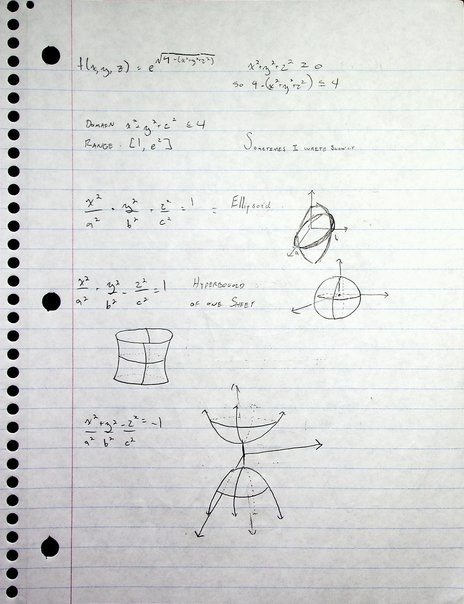 f(x,y,z) = e^√(4-(x²+y²+z²))
x²+y²+z² ≥ 0
so 4-(x²+y²+z²) ≤ 4
DOMAIN x²+y²+z² ≤ 4
RANGE: [1, e²]
SOMETIMES I WRITE SLOWLY
x²/a² + y²/b² + z²/c² = 1 = Ellipsoid
x²/a² + y²/b² - z²/c² = 1 HYPERBOLOID
OF ONE SHEET
x²/a² + y²/b² - z²/c² = -1